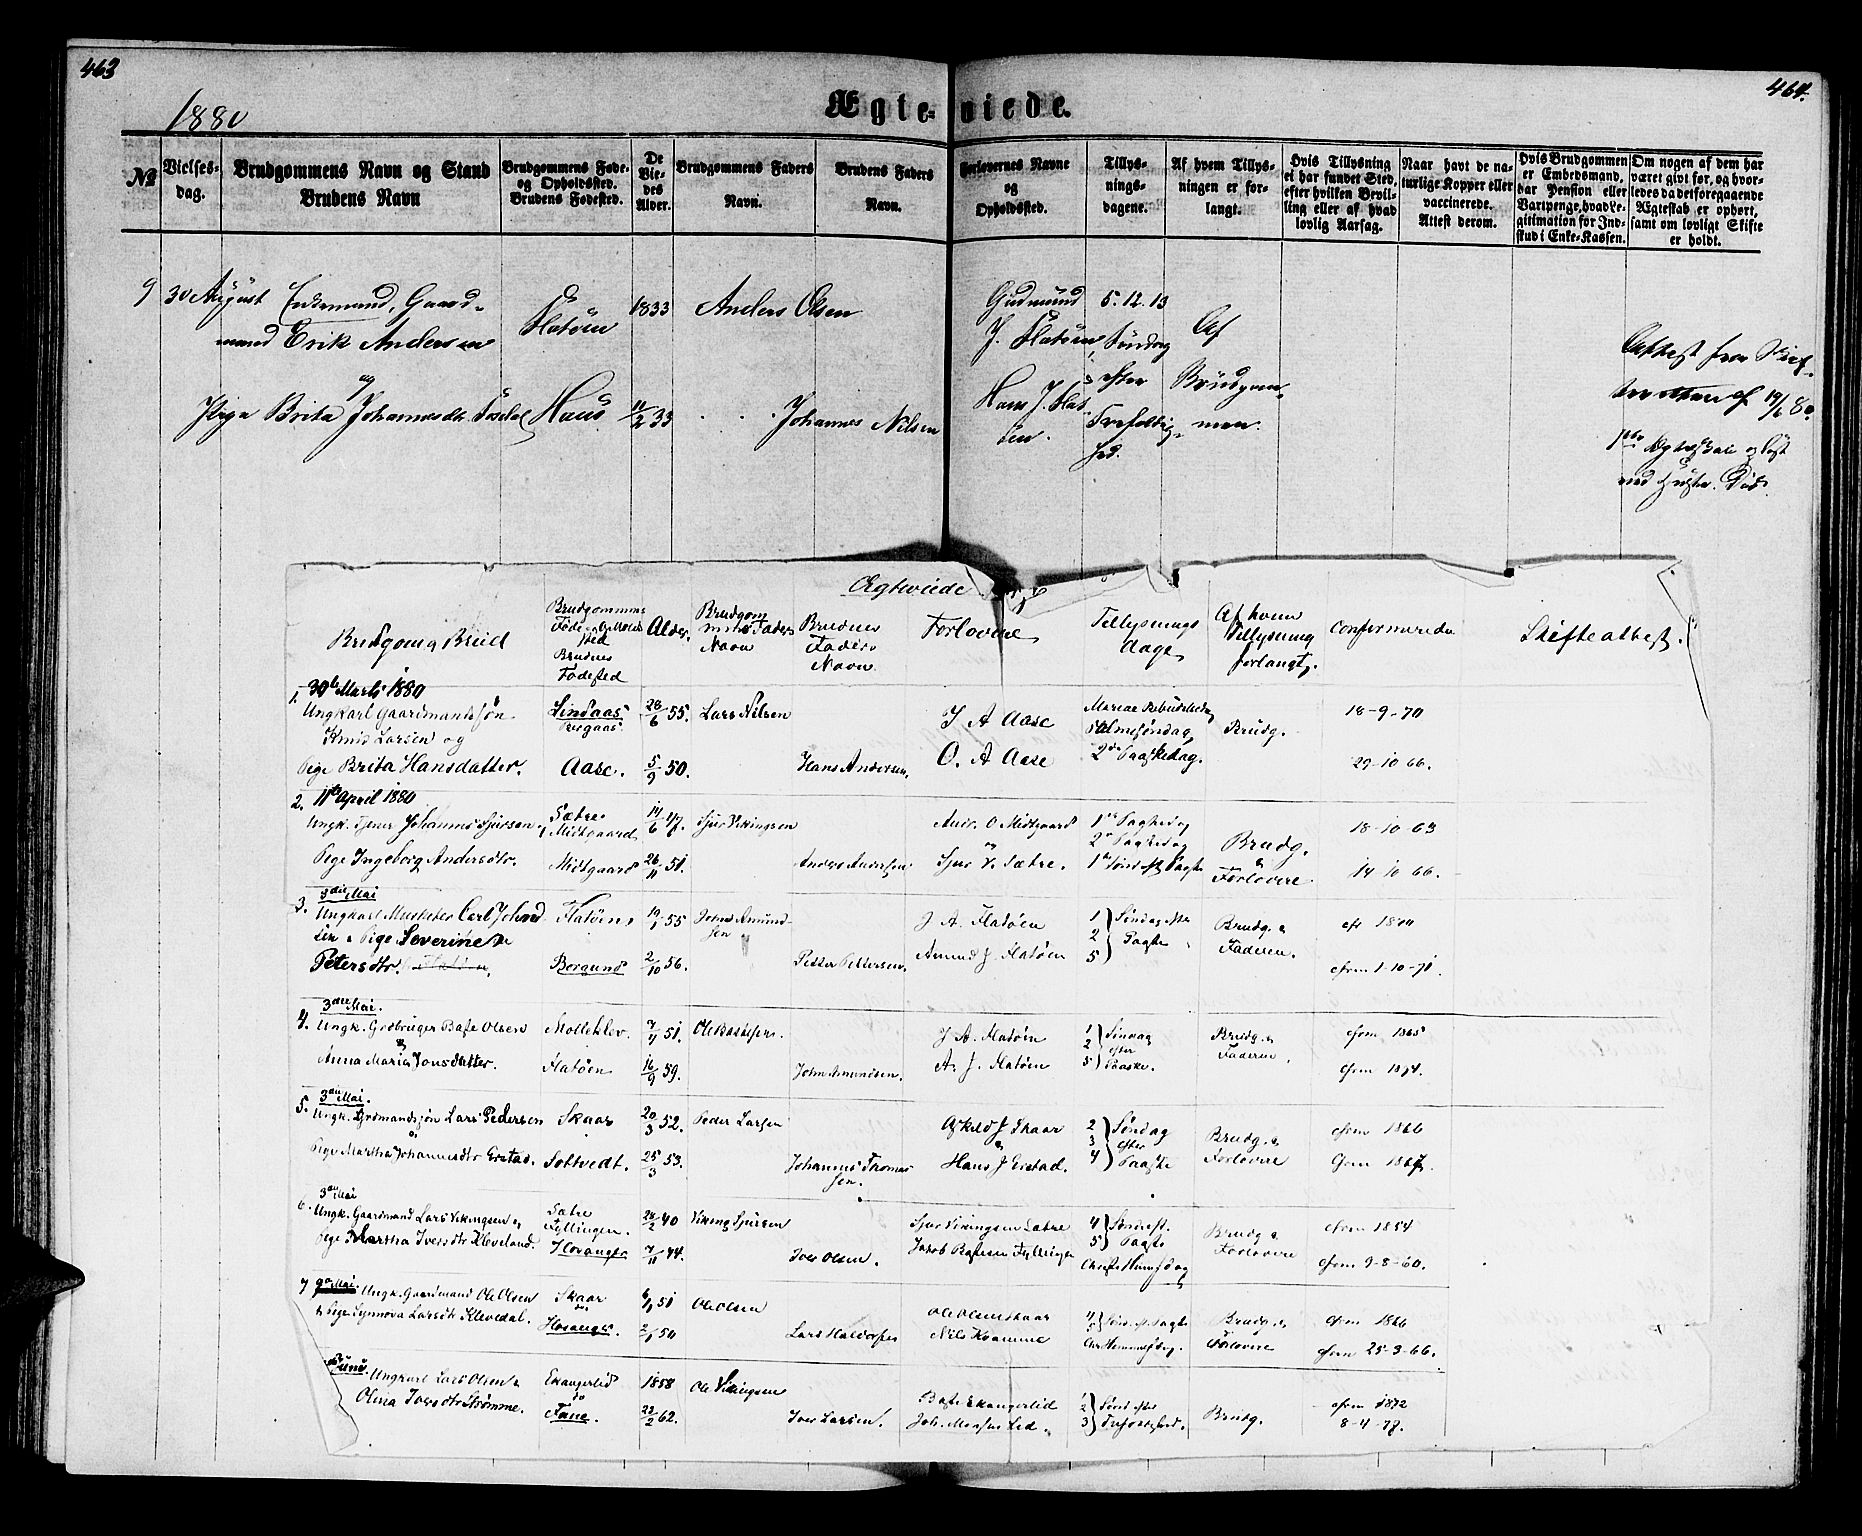 463
464.
1880
Ægte-viede.
№
Vielses-dag.
Brudgommens Navn og Stand
Brudens Navn
Brudgommens Føde- og Opholdssted.
Brudens Fødested.
De Viedes Alder.
Brudgommens Faders Navn.
Brudens Faders Navn.
Forlovernes Navne og Opholdssted.
Tillysnings-dagene.
Af hvem Tillysningen er forlangt.
Hvis Tillysning ei har fundet Sted, efter hvilken Bevilling eller af hvad lovlig Aarsag.
Naar havt de naturlige Kopper eller vaccinerede. Attest derom.
Hvis Brudgommen er Embedsmand, har Pension eller Vartpenge, hvad Legitimation for Indskud i Enke-Kassen.
Om nogen af dem har været givt før, og hvorledes da det foregaaende Ægteskab er ophørt, samt om lovligt Skifte er holdt.
9 30 August Enkemand, Gaard-
mand Erik Andersen
Flatøen
1833
Anders Olsen
og
Pige Brita Johannesdtr
Haus
11/2 33
Johannes Nilsen
Gudmund
J. Flatøen
Hans J. Flat-
øen.
5. 12. 13
Søndag
efter
Trefoldig-
hed.
Af
Brudgom-
men.
Attest fra Skif-
teretten af 19/6 80.
Ægteskab opløst
ved Hustr. Død.
Ægteviede
Brudgom og Brud
Brudgommens Føde og Opholds sted
Brudens Fødested
Alder.
Brudgommens Faders Navn
Brudens Faders Navn
Forlovere
Tillysnings dage
Af hvem Tillysning forlangt.
Confirmerede
Skifteattest.
1. 30te Marts 1880
Ungkarl Gaardmandssøn
Knud Larsen og
Lindaas
28/6 55.
Lars Nilsen
J A Aase
Mariae Bebudelsedag
Palmesøndag
Brudg.
18-9-70
Pige Brita Hansdatter.
Aase.
5/9 50.
Hans Andersen.
O. A Aase
2den Paaskedag.
29-10 66.
2. 11te April 1880
Ungk. Tjener Johannes Sjursen
Sætre
Midtgaard
14/6 47.
Sjur Vikingsen
Andr. O Midtgaard
og
1ste Paaskedag
2den Paaskedag
Brudg.
&
18-10 63
Pige Ingeborg Andersdtr.
Midtgaard
26/11 51.
Anders Andersen
Sjur V. Sætre.
1ste Sønd. eft Paaske
Forlovere
14 10 66.
3. 3die Mai
Ungkarl Musketer Carl Johnd
sen & Pige Severine
Petersdtr.
Flatøen
Borgund
55
2/10 56.
John Amund-
sen
Petter Pettersen.
J. A. Flatøen
Amund J. Flatøen
1
2
5
Søndag efter
Paaske
Brudg. &
Faderen.
cfrm 1-10-71.
4. 3die Mai.
Ungk. Grdbruger Baste Olsen
&
Anna Maria Jonsdatter.
Molleklev.
Flatøen
51.
16/9 59.
Ole Bastesen
John Amundsen.
J A. Flatøen
A. J. Flatøen
1
2
5
Søndag
efter
Paaske.
Brudg. &
Faderen.
cfrm 1865
cfrm 1874.
5. 3die Mai.
Ungk. Grdmandssøn Lars Pedersen
&
Pige Martha Johannesdtr Eistad.
Skaar
Soltvedt.
20/3 52.
25/3 53.
Peder Larsen
Johannes Thomas
sen.
Askild J Skaar
&
Hans J Eistad.
2
3
4
Søndag
efter
Paaske
Brudg. &
Forlovere
cfrm 1866
cfrm 1867.
6. 3die Mai
Ungk. Gaardmand Lars Vikingsen &
Pige Martha Iversdtr Kleveland.
Sætre
Fyllingen.
Hosanger
28/2 40
7/11 44.
Viking Sjursen
Iver Olsen.
Sjur Vikingsen Sætre
Jakob Bastesen Fyllingen
4
5
Sønd eft.
Paaske
Christi Himmelfdag
Brudg &
Forlovere
cfrm 1854
cfrm 9-8-60.
7 9de Mai. Ungk. Gaardmand Ole Olsen
& Pige Synnøva Larsdtr Klevedal.
Skaar
Hosanger.
51
50
Ole Olsen
Lars Haldorsen
Ole Olsen Skaar
Nils Kvamme
4
5
Sønd. eft. Paaske
Chr Himmelfdag.
Brudg. &
Forlovere
cfrm 1866
cfrm 25-3-66.
Juni. Ungkarl Lars Olsen &
Olina Iversdtr Strømme.
Eikangerlid
Fane.
1858
22/2 62.
Ole Vikingsen
Iver Larsen.
Baste Eikangerlid
Joh. Monsen Lid
1
2
3
Sønd efter
Trefoldighed.
Brudg.
cfrm 1872
8-4-77.